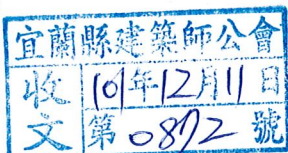 宜蘭縣建築師公會
收文
101年12月11日
第0872號